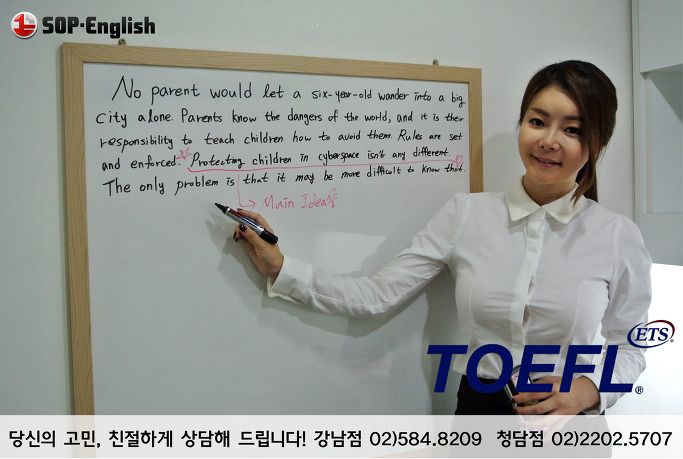 SOP·English
No parent would let a six-year-old wander into a big
city alone. Parents know the dangers of the world, and it is their
responsibility to teach children how to avoid them. Rules are set
and enforced. Protecting children in cyberspace isn't any different.
The only problem is that it may be more difficult to know that.
Main Idea
ETS
TOEFL®
당신의 고민, 친절하게 상담해 드립니다! 강남점 02)584.8209 청담점 02)2202.5707